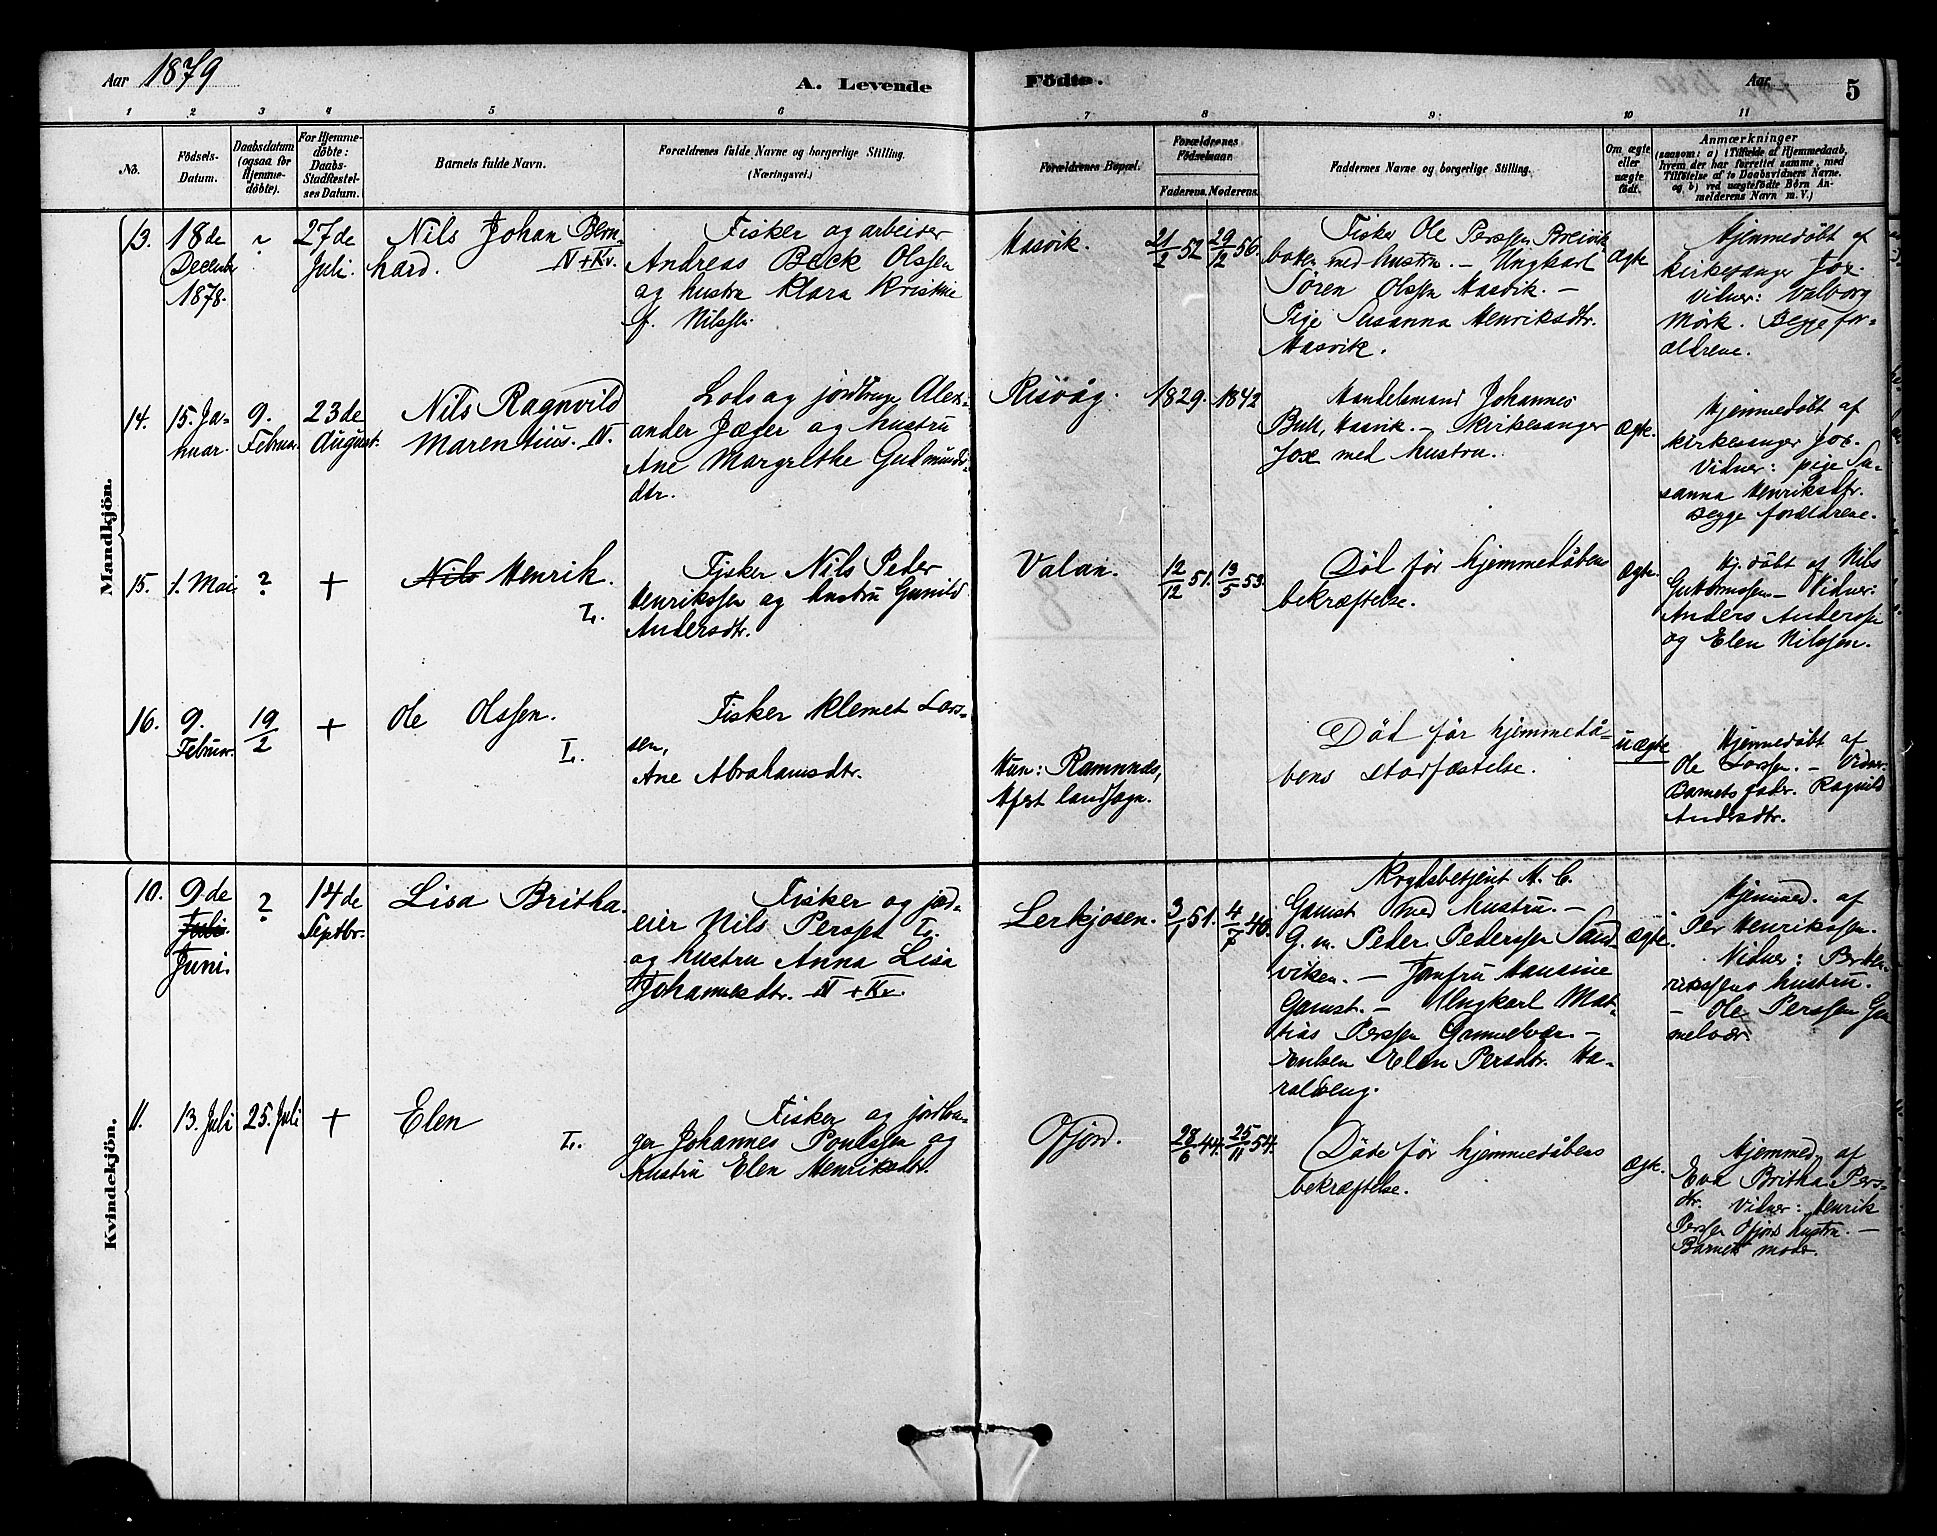 Aar 1879
A. Levende Födte.
Aar
5
1 2 3 4 5 6 7 8 9 10 11
No.
Födsels-
Datum.
Daabsdatum
(ogsaa for
Hjemme-
döbte).
For Hjemme-
döbte:
Daabs-
Stadfæstel-
ses Datum.
Barnets fulde Navn.
Forældrenes fulde Navne og borgerlige Stilling.
(Næringsvei.)
Forældrenes Bopæl.
Forældrenes
Födselsaar.
Faderens. Moderens.
Faddernes Navne og borgerlige Stilling.
Om ægte
eller
uægte
födt.
Anmærkninger
(saasom: a) i Tilfælde af Hjemmedaab,
hvem der har forrettet samme, med
Tilföielse af to Daabsvidners Navne,
og b) ved uægtefödte Börn An-
melderens Navn m. V.)
Mandkjön.
13.
18 de
Decembr
1878.
27 de
Juli.
Nils Johan Bern-
hard. N + Kv.
Fisker og arbeider
Andreas Beck Olssen
og hustru Klara Kristine
f. Nilssen.
Hasvik.
21/2 52
29/12 56.
Fisker Ole Perssen Breivik
boken med hustru. — Ungkarl
Sören Olssen Hasvik. —
Pige Susanna Henriksdtr.
Hasvik.
ægte
Hjemmedöbt af
kirkesanger Fox.
Vidner: Valborg
Mörk. Begge for-
ældrene.
14.
15. Ja-
nuar.
9.
Februar.
23 de
August.
Nils Ragnvild
Marentius. N.
Lods og jordbruger Alex-
ander Jæger og hustru
Ane Margrethe Gudmunds-
dtr.
Risvåg.
1829.
1842
Handelsmand Johannes
Buck, Hasvik. — Kirkesanger
Fox med hustru.
ægte.
Hjemmedöbt af
kirkesanger Fox.
Vidner: pige Su-
sanna Henriksdtr.
Begge forældrene.
15.
1. Mai
?
+
Nils Henrik.
L.
Fisker Nils Peder
Henrikssen og hustru Gunild
Andersdtr.
Valan.
12/12 51.
13/5 53.
Död för hjemmedåbens
bekræftelse.
ægte.
Hj. döbt af Nils
Guttormssen. — Vidner:
Anders Anderssen
og Elen Nilssen.
16.
9.
Februar.
19/2
+
Ole Olssen.
L.
Fisker Klemet Lars-
sen,
Ane Abrahamsdtr.
Hun: Ramnnes,
Hfest landsogn.
Död för hjemmedå-
bens stadfæstelse.
uægte
Hjemmedöbt af
Ole Larssen. — Vidner:
Barnets fader. Ragnild
Andersdtr.
Kvindekjön.
10.
9 de
Juli.
Juni.
?
14 de
Septbr.
Lisa Britha.
Fisker og jord-
eier Nils Perssen L.
og hustru Anna Lisa
Johannesdtr. N + Kv.
Lerkjosen.
3/1 51.
4/7 40.
Krydsbetjent H. C.
Gamst med hustru. —
G. m. Peder Pederssen Sand-
viken. — Jomfru Hansine
Gamst. — Ungkarl Mat-
tias Perssen Gammelvær —
Enken Elen Persdtr. Ha-
raldseng.
ægte.
Hjemmed. af
Per Henrikssen.
Vidner: P. Hen-
rikssens hustru.
— Ole Perssen Gam-
melvær.
11.
13. Juli
25. Juli
+
Elen
L.
Fisker og jordbru-
ger Johannes Poulssen og
hustru Elen Henriksdtr.
Ofjord.
28/6 44.
25/11 54.
Döde för hjemmedåbens
bekræftelse.
ægte.
Hjemmed. af
Eva Britha Pers-
dtr. Vidner: Henrik
Perssen Ofjord hustru. —
Barnets moder.